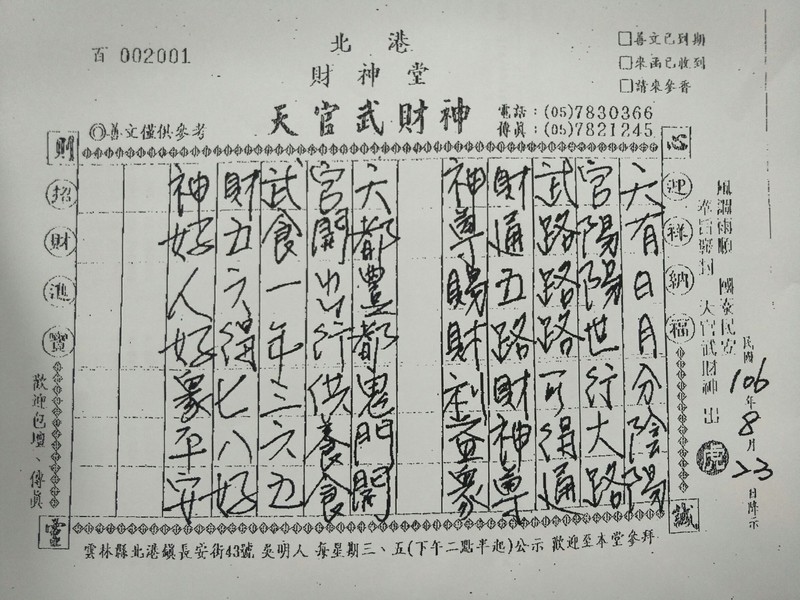 百 002001
北港
財神堂
天官武財神
□善文已到期
□來函已收到
□請來參香
電話：(05)7830366
傳真：(05)7821245
◎善文僅供參考
心誠
則靈
迎祥納福
招財進寶
風調雨順 國泰民安
奉旨 天官武財神 出
民國106年8月23日降示
天有日月分陰陽
官陽陽世行大路
武路路路可得通
財通五路財神尊
神尊賜財利益眾
天都豐都鬼門開
官開出行供養食
武食一年三六五
財五六得七八好
神好人好眾平安
歡迎包壇、傳真
雲林縣北港鎮長安街43號 吳明人 每星期三、五(下午二點半起)公示 歡迎至本堂參拜